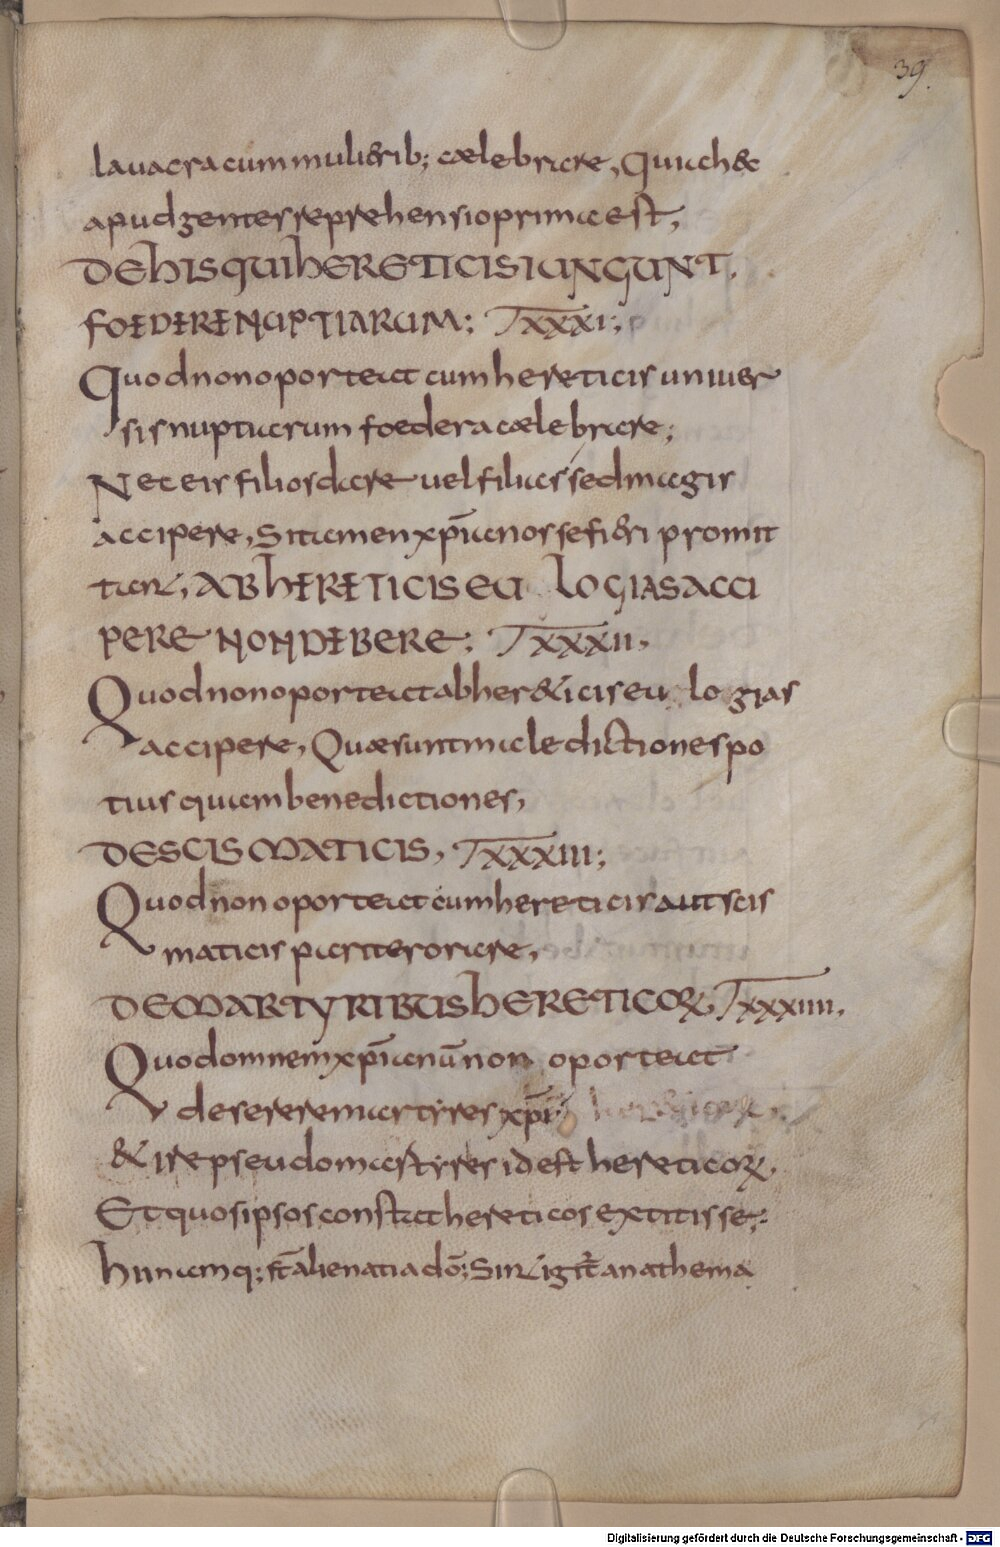 39.
lauacra cum mulierib; caelebrare, Quia haec
apud gentes reprehensio prima est,
DE HIS QUI HERETICIS IUNGUNT,
FOEDERE NUPTIARUM; TXXXI;
Quod non oporteat cum hereticis univer
sis nuptiarum foedera caelebrare;
Nec eis filios dare uel filias sed magis
accipere, Si tamen xp̄ianos se fieri promit
tant, AB HERETICIS EU LOGIAS ACCI
PERE NON DEBERE; TXXXII,
Quod non oporteat ab her&icis eu logias
accipere, Quae sunt maledictiones po
tius quam benedictiones,
DE SCISMATICIS, TXXXIII;
Quod non oporteat cum hereticis aut scis
maticis pariter orare,
DE MARTYRIBUS HERETICOꝝ, TXXXIIII,
Quod omnem xp̄ianū non oporteat
deserere martyres xp̄i
& ire pseudomartyres id est hereticoꝝ,
Et quos ipsos constat hereticos extitisse;
hii namq; st̄ alienati a dō; Sint igit̄ anathema
Digitalisierung gefördert durch die Deutsche Forschungsgemeinschaft - DFG